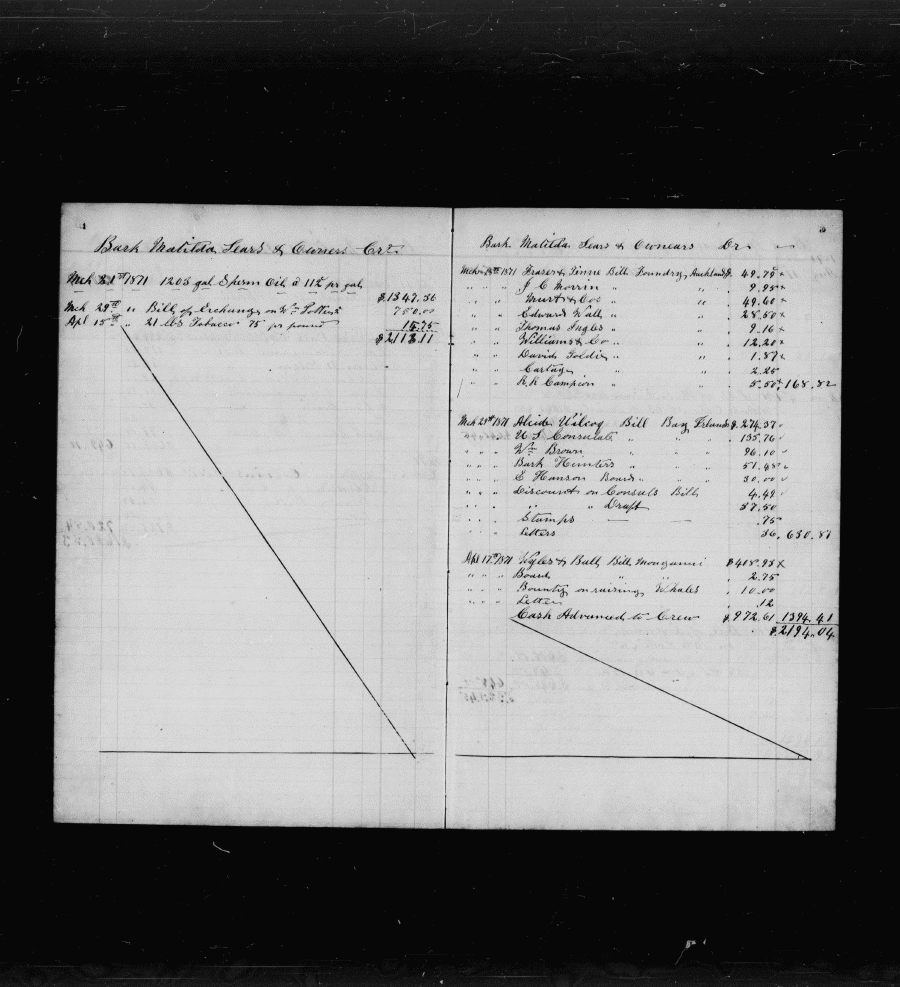 Bark Matilda Sears & Owners Crr
Mch 31st 1871 1203 gal Sperm Oil a 112 pr gal
$1347.36
Mch 29th " Bill of Exchange on Wm 750.00
Apl 15th " 21 lbs Tobacco 75 pr pound 15.75
$2113.11
Bark Matilda Sears & Owners Dr
Mch 13th 1871 Fraser & Tinne Bill Foundry Auckland $ 49.75
" " " J C Morrin " " " 9.95
" " " & Co " " " 49.60
" " " Edward Wall " " " 28.50
" " " Thomas Ingles " " " 9.16
" " " Williams & Co " " " 12.20
" " " David Goldie " " " 1.87
" " " Cartage " 2.25
" " " R. R. Campion " " " 5.50 168.82
Mch 28th 1871 Wilcox Bill Bay Islands $ 274.37
" " " U S Consulate " " " 135.76
" " " Wm Brown " " " 96.10
" " " Bark Hunters " " " 51.48
" " " E Hanson Board " " " 30.00
" " " Discount on Consuls Bill 4.49
" " " " " Draft 37.50
" " " Stamps — — .75
" " " Letters 36 630.81
Apl 17th 1871 & Ball Bill Monganui $418.93
" " " Board " " 2.75
" " " Bounty on raising Whales 10.00
" " " Letter .12
Cash Advanced to Crew $972.61 1394.41
$2194.04